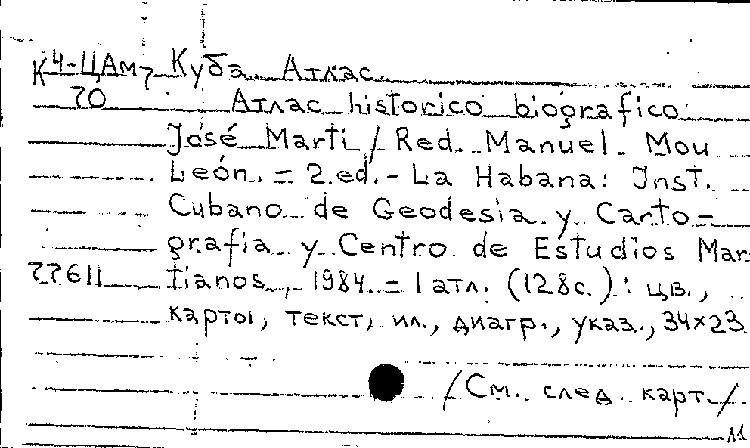 К4-ЦАм7 Куба. Атлас
70 Атлас historico biografico
José Marti / Red. Manuel Mou
León. = 2.ed. - La Habana: Inst.
Cubano de Geodesia y Carto-
grafia y Centro de Estudios Mar
77611 tianos, 1984. = 1 атл. (128с.): цв.,
карты, текст, ил., диагр., указ., 34×23
/См. след. карт./